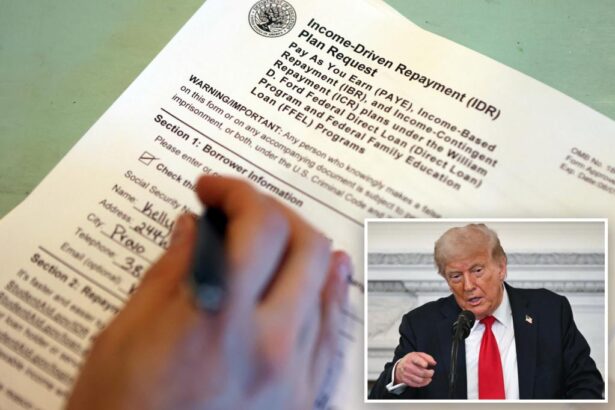 Income-Driven Repayment (IDR)
Plan Request
Pay As You Earn (PAYE), Income-Based
Repayment (IBR), and Income-Contingent
Repayment (ICR) Plans under the William
D. Ford Federal Direct Loan (Direct Loan)
Program and Federal Family Education
Loan (FFEL) Programs
OMB No.
Form Approved
Exp. Date:
WARNING/IMPORTANT: Any person who knowingly makes a false
on this form or on any accompanying document is subject to
imprisonment, or both, under the U.S. Criminal Code and
Section 1: Borrower Information
Please enter or
Check this
Social Security
Name: Kelly
Address: 244
City: Provo
Telephone: 38
Email (optional)
Section 2: Repay
It's faster and easier